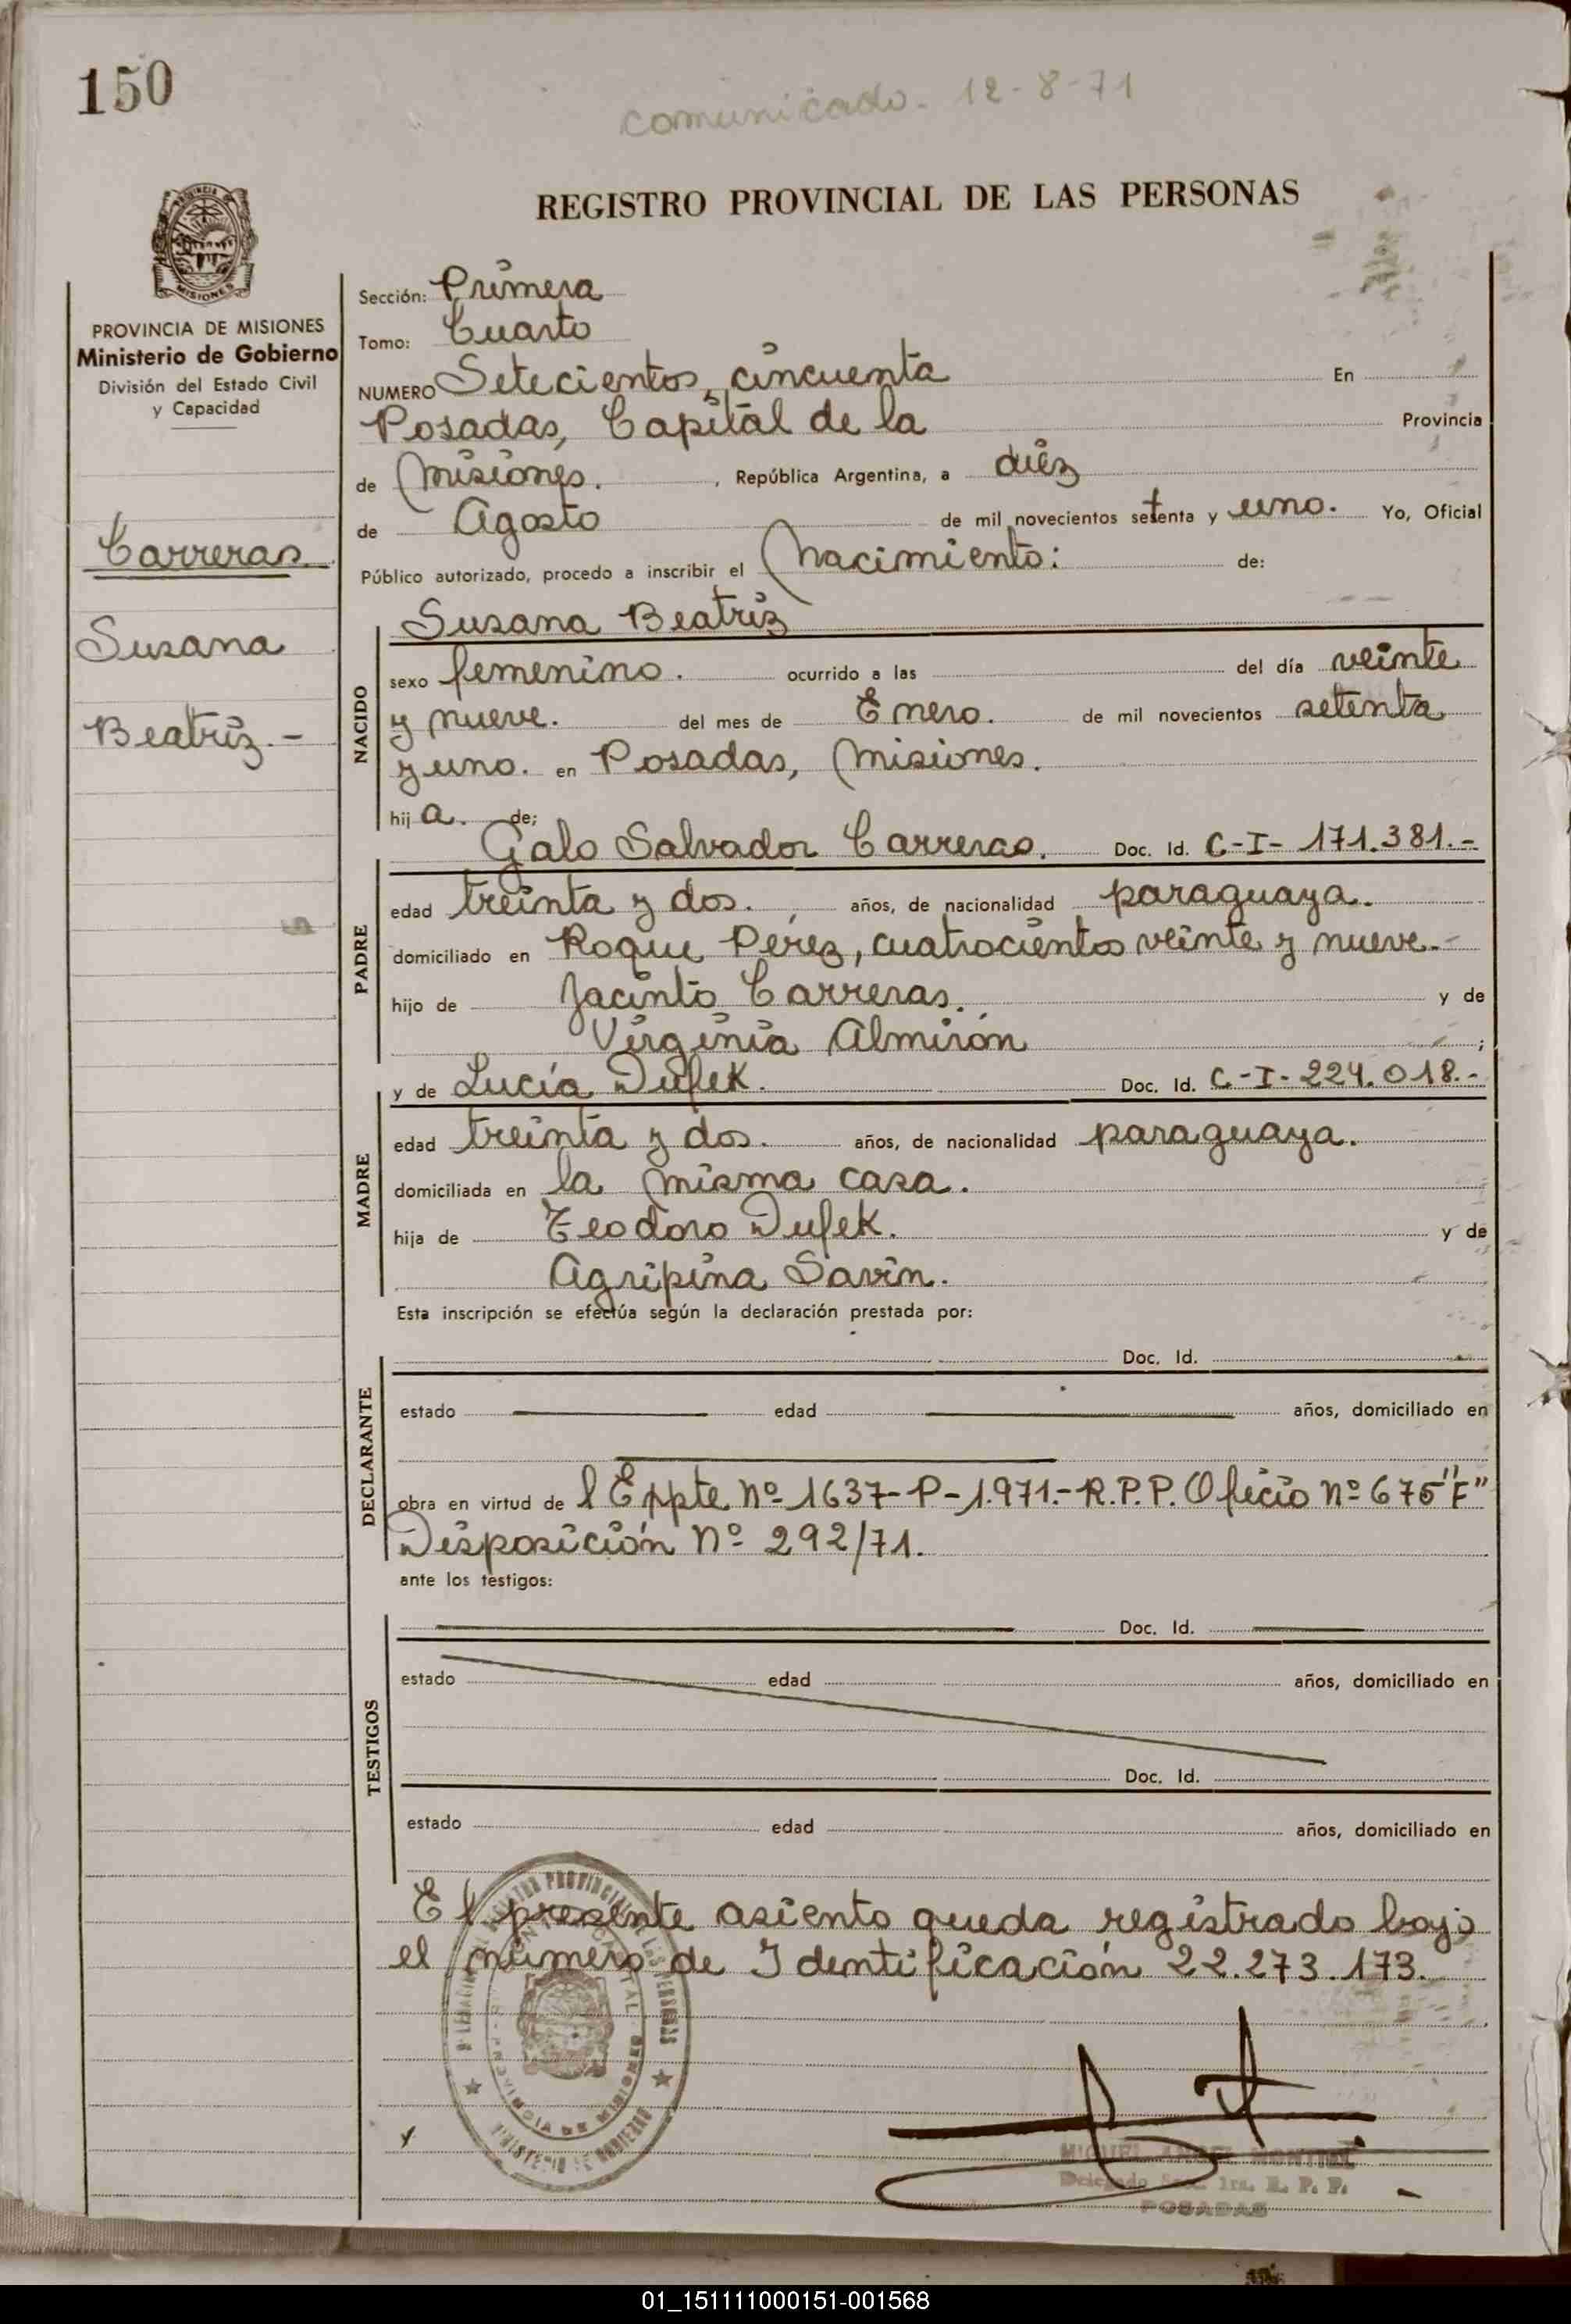 150
comunicado. 12-8-71
REGISTRO PROVINCIAL DE LAS PERSONAS
MISIONES
PROVINCIA DE MISIONES
Ministerio de Gobierno
División del Estado Civil
y Capacidad
Carreras.
Susana
Beatriz.-
Sección: Primera
Tomo: Cuarto
NUMERO Setecientos cincuenta En
Posadas, Capital de la Provincia
de Misiones. , República Argentina, a diéz
de Agosto de mil novecientos setenta y uno. Yo, Oficial
Público autorizado, procedo a inscribir el Nacimiento: de:
Susana Beatriz
NACIDO
sexo femenino. ocurrido a las del día veinte
y nueve. del mes de Enero. de mil novecientos setenta
y uno. en Posadas, Misiones.
hij a. de;
Galo Salvador Carreras. Doc. Id. C-I- 171.381.-
PADRE
edad treinta y dos. años, de nacionalidad paraguaya.
domiciliado en Roque Pérez, cuatrocientos veinte y nueve.-
hijo de Jacinto Carreras. y de
Virginia Almirón ;
y de Lucía Dufek. Doc. Id. C-I-224.018.-
MADRE
edad treinta y dos. años, de nacionalidad paraguaya.
domiciliada en la misma casa.
hija de Teodoro Dufek. y de
Agripina Savin.
Esta inscripción se efectúa según la declaración prestada por:
Doc. Id.
DECLARANTE
estado edad años, domiciliado en
obra en virtud de l Exppte Nº 1637-P-1.971.- R.P.P. Oficio Nº 675 "F"
Disposición Nº 292/71.
ante los testigos:
Doc. Id.
TESTIGOS
estado edad años, domiciliado en
Doc. Id.
estado edad años, domiciliado en
El presente asiento queda registrado bajo
el número de Identificación 22.273.173.
MINISTERIO DE GOBIERNO
MIGUEL ANGEL MONTIEL
Delegado Sec. 1ra. R. P. P.
POSADAS
01_151111000151-001568